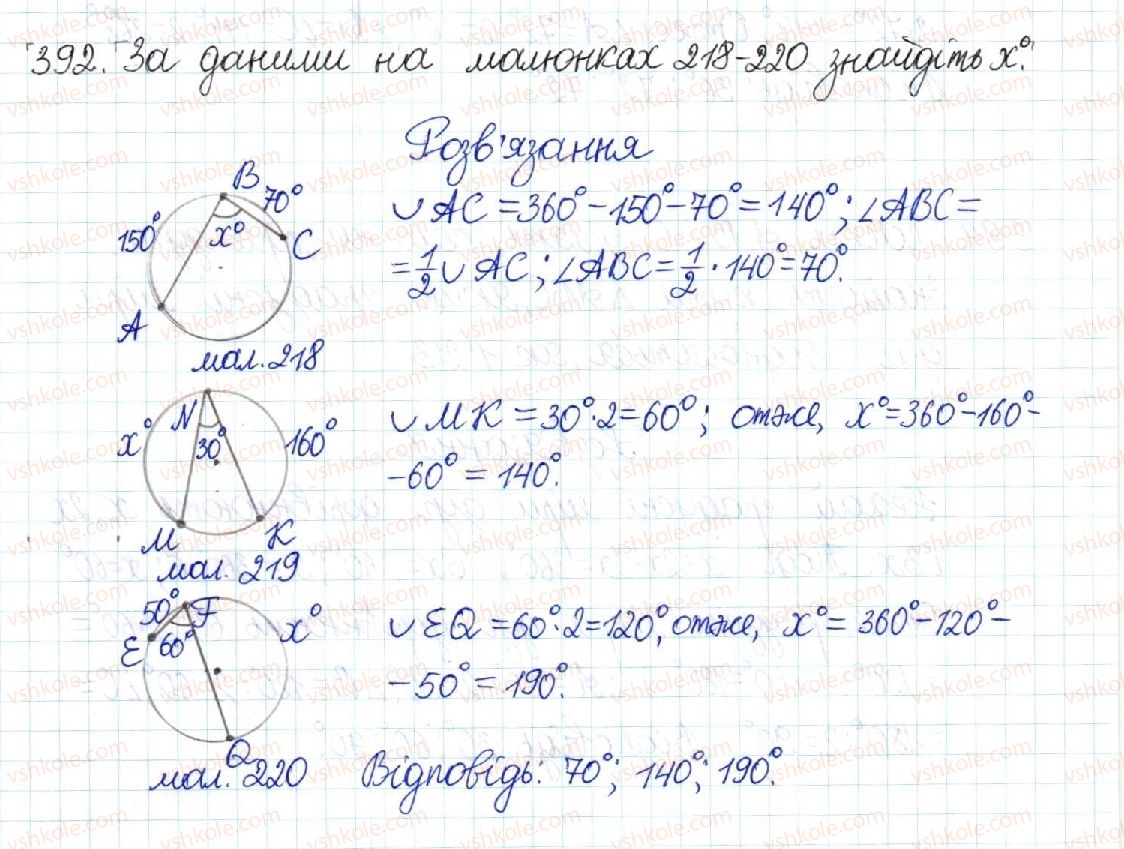 392. За даними на малюнках 218-220 знайдіть x°.
Розв'язання
B
70°
150°
x°
C
A
мал. 218
∪ AC = 360° - 150° - 70° = 140°; ∠ABC =
= 1/2 ∪ AC; ∠ABC = 1/2 · 140° = 70°.
N
x°
30°
160°
M
K
мал. 219
∪ MK = 30° · 2 = 60°; отже, x° = 360° - 160° -
- 60° = 140°.
50°
F
x°
E
60°
Q
мал. 220
∪ EQ = 60° · 2 = 120°, отже, x° = 360° - 120° -
- 50° = 190°.
Відповідь: 70°; 140°; 190°.
vshkole.com